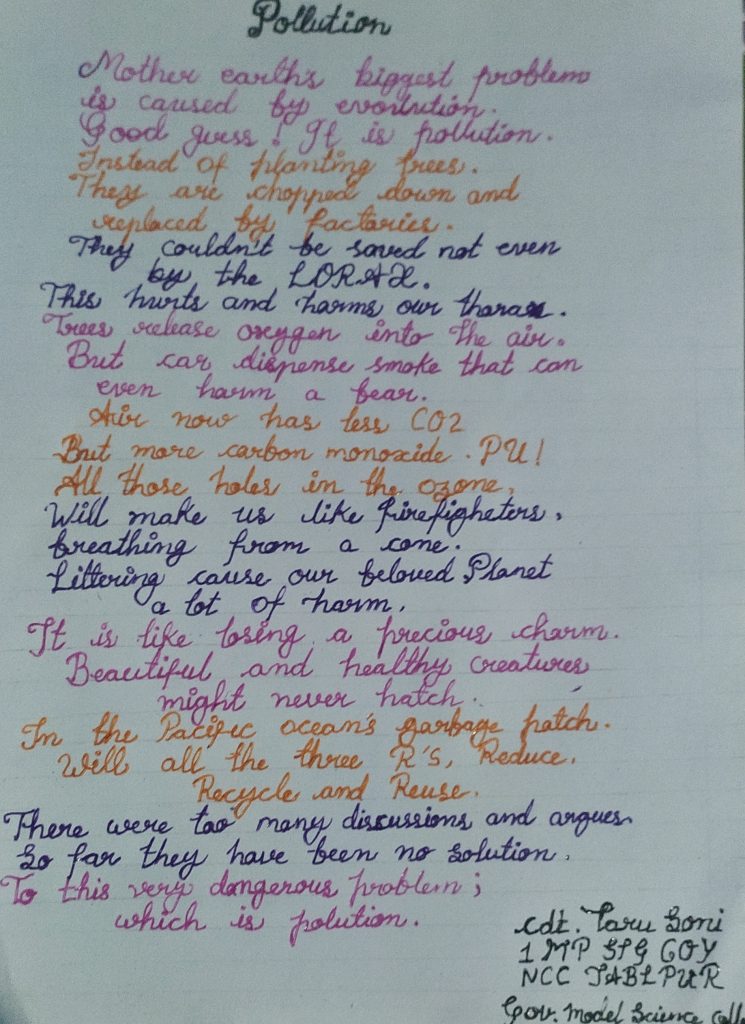 Pollution
Mother earth's biggest problem
is caused by evolution.
Good guess! It is pollution.
Instead of planting trees.
They are chopped down and
replaced by factories.
They couldn't be saved not even
by the LORAX.
This hurts and harms our
Trees release oxygen into the air.
But car dispense smoke that can
even harm a bear.
Air now has less CO2
But more carbon monoxide. PU!
All those holes in the ozone,
Will make us like firefigheters,
breathing from a cone.
Littering cause our beloved Planet
a lot of harm.
It is like losing a precious charm.
Beautiful and healthy creatures
might never hatch.
In the Pacific ocean's garbage patch.
Will all the three R'S, Reduce.
Recycle and Reuse.
There were too many discussions and argues.
So far they have been no solution.
To this very dangerous problem;
which is polution.
cdt. Taru Soni
1 MP SIG COY
NCC JABLPUR
Gov. Model Science